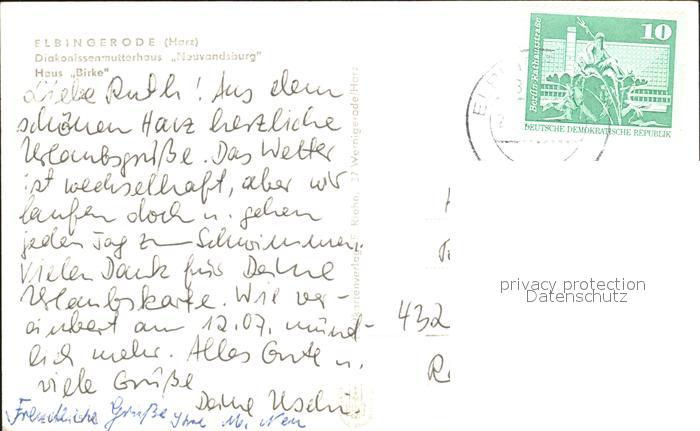 ELBINGERODE (Harz)
Diakonissenmutterhaus „Neuvandsburg"
Haus „Birke"
Liebe Ruth! Aus dem
schönen Harz herzliche
Urlaubsgrüße. Das Wetter
ist wechselhaft, aber wir
laufen doch u. gehen
jeden Tag zum Schwimmen.
Vielen Dank für Deine
Urlaubskarte. Wie ver-
einbart am 12.07. münd-
lich mehr. Alles Gute u.
viele Grüße
Deine Uschi.
Freundliche Grüße Ihre
37 Wernigerode/Harz
10
Berlin, Rathausstraße
DEUTSCHE DEMOKRATISCHE REPUBLIK
privacy protection
Datenschutz
432